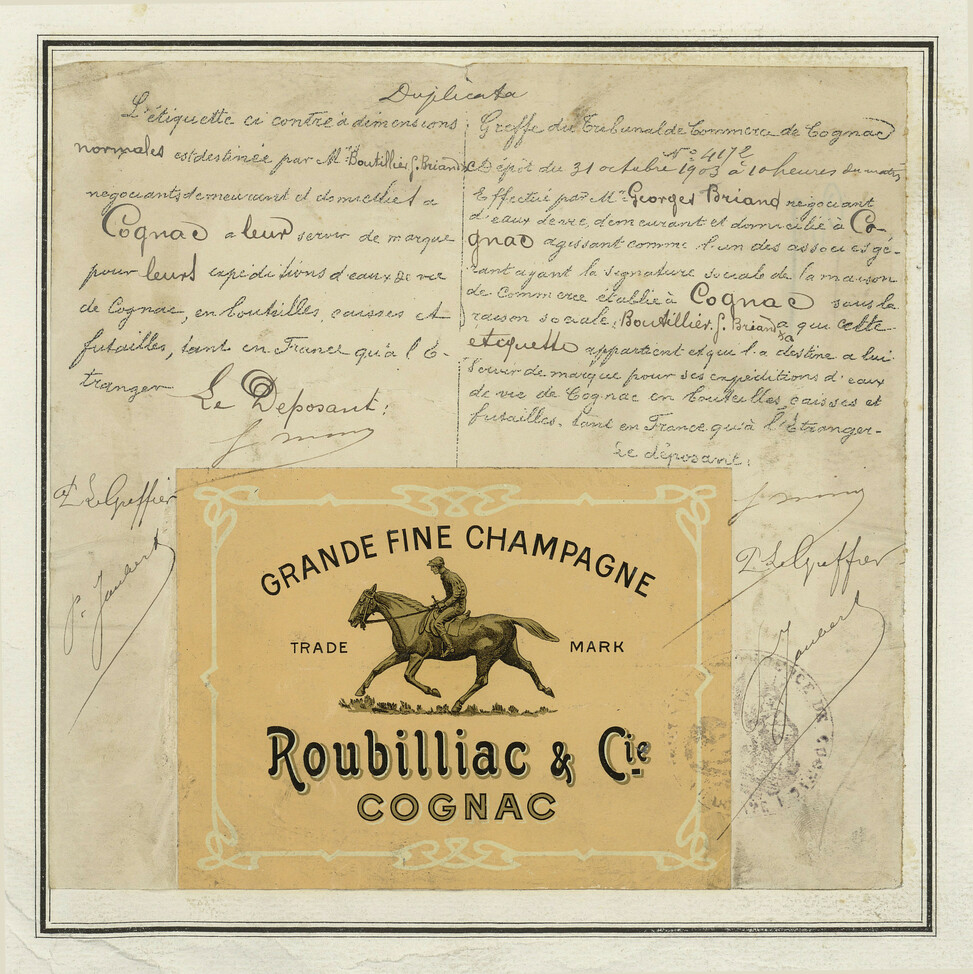 Duplicata
L'étiquette ci contre à dimensions
normales est destinée par Mrs Boutillier, G. Briand & Ce
negociants demeurant et domiciliés a
Cognac a leur servir de marque
pour leurs expéditions d'eaux de vie
de Cognac, en bouteilles, caisses et
futailles, tant en France qu'à l'E-
tranger
Le Deposant:
P. Le Greffier
P. Jaubert
Greffe du Tribunal de Commerce de Cognac
No 4172
Dépôt du 31 octobre 1903 à 10 heures du matin
Effectué par Mr Georges Briand negociant
d'eaux de vie, demeurant et domicilié à Co-
gnac agissant comme l'un des associés gé-
rant ayant la signature sociale de la maison
de Commerce établie à Cognac sous la
raison sociale, Boutillier, G. Briand & Ce a qui cette
etiquette appartient et qui l'a destine a lui
servir de marque pour ses expéditions d'eaux
de vie de Cognac en bouteilles, caisses et
futailles, tant en France qu'à l'Etranger-
Le déposant:
P. Le Greffier
Jaubert
GRANDE FINE CHAMPAGNE
TRADE MARK
Roubilliac & Cie
COGNAC